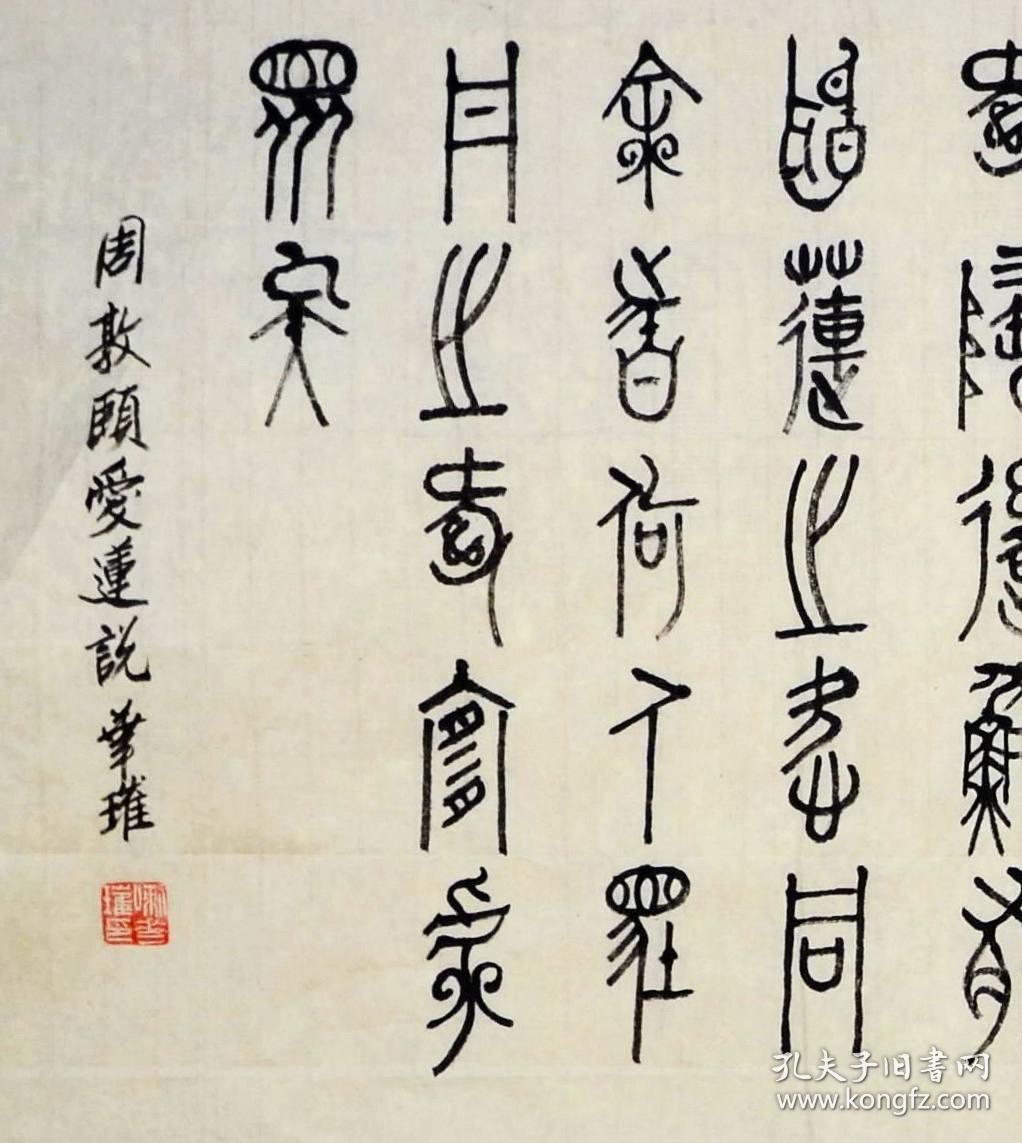 愛陶後鮮有
聞蓮之愛同
余者何人牡
丹之愛宜乎
眾矣
周敦頤愛蓮說 華璀
孔夫子旧书网
www.kongfz.com